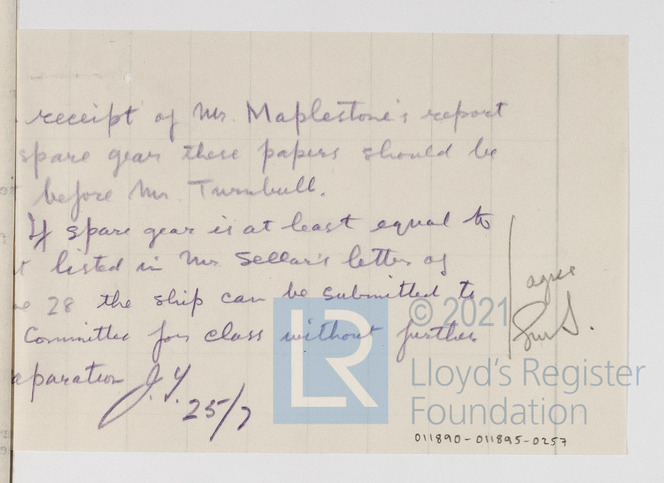 receipt of Mr. Maplestone's report
spare gear these papers should be
before Mr. Turnbull.
If spare gear is at least equal to
t listed in Mr Sellar's letter of
e 28 the ship can be submitted to
Committee for class without further
aparation J.Y. 25/7
agree
LR
© 2021
Lloyd's Register
Foundation
011890-011895-0257